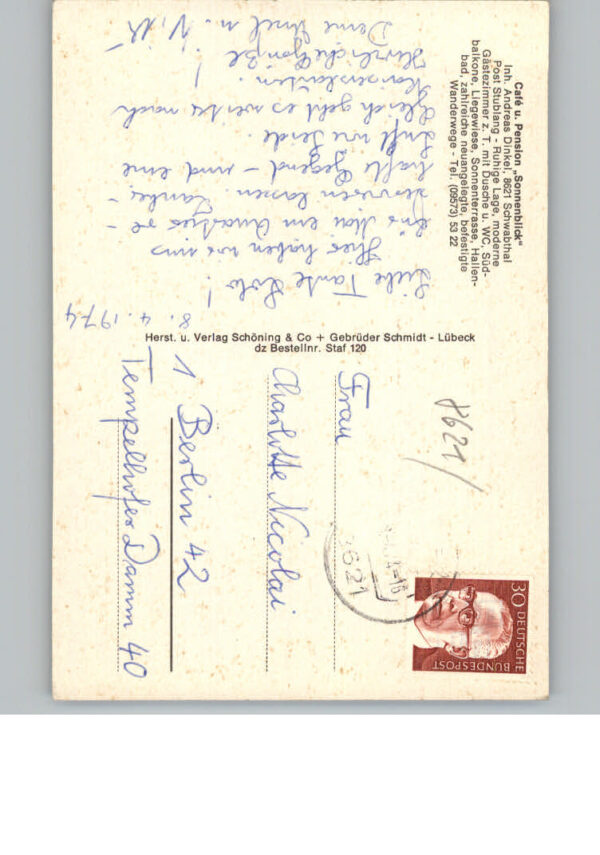 Café u. Pension „Sonnenblick"
Inh. Andreas Dinkel, 8621 Schwabthal
Post Stublang - Ruhige Lage, moderne
Gästezimmer z. T. mit Dusche u. WC, Süd-
balkone, Liegewiese, Sonnenterrasse, Hallen-
bad, zahlreiche neuangelegte, befestigte
Wanderwege - Tel. (09573) 53 22
8. 4. 1974
Liebe Tante Lolo!
Hier haben wir uns
bis Mai ein Quartier re-
servieren lassen. Zauber-
hafte Gegend - und eine
Luft wie Seide.
Gleich geht es weiter nach
Kaiserslautern.
Herzliche Grüße!
Deine
Herst. u. Verlag Schöning & Co + Gebrüder Schmidt - Lübeck
dz Bestellnr. Staf 120
8621
8621
30 DEUTSCHE
BUNDESPOST
Frau
Charlotte Nicolai
1 Berlin 42
Tempelhofer Damm 40